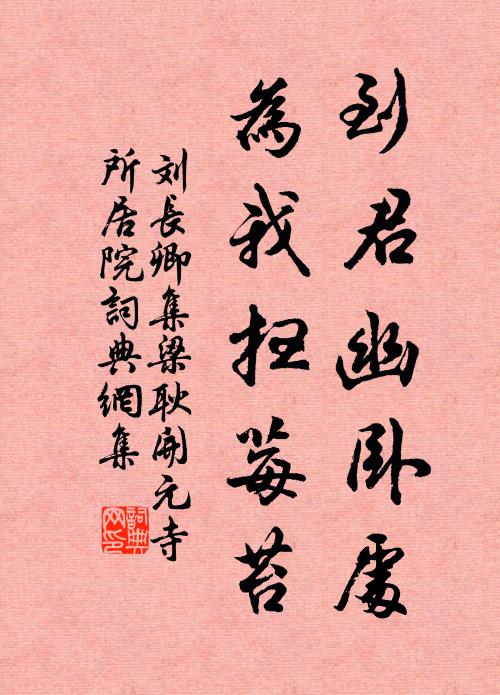 到君幽卧處
為我扫莓苔
刘長卿集梁耿開元寺
所居院詞典網集
詞典
网印